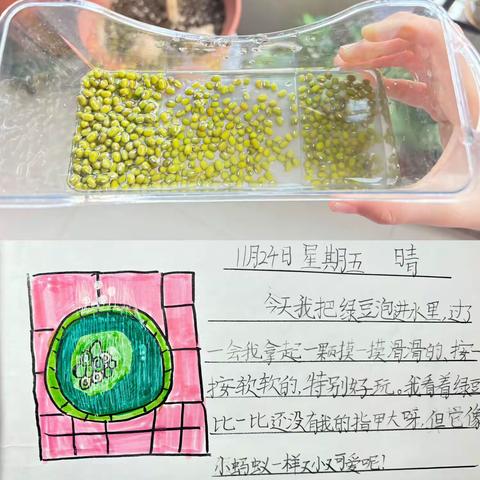 11月24日 星期五 晴
今天我把绿豆泡进水里,过了
一会我拿起一颗摸一摸滑滑的,按一
按软软的,特别好玩。我看着绿豆
比一比还没有我的指甲大呀,但它像
小蚂蚁一样又小又可爱呢!